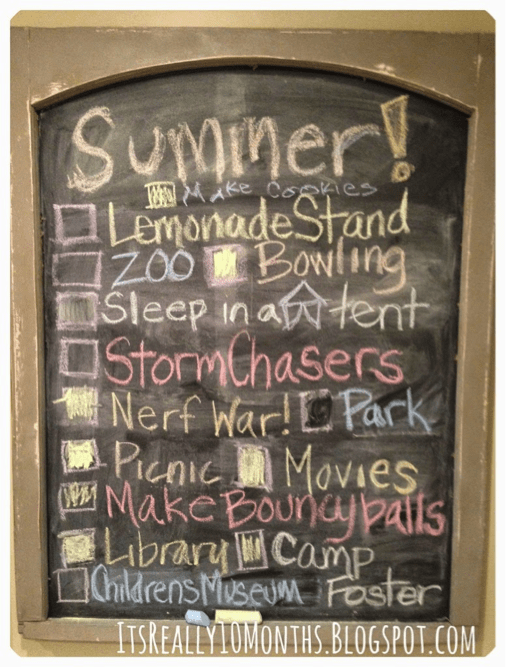 Summer!
Make Cookies
Lemonade Stand
Zoo Bowling
Sleep in a tent
Storm Chasers
Nerf War! Park
Picnic Movies
Make Bouncyballs
Library Camp
Childrens Museum Foster
ItsReally10Months.blogspot.com